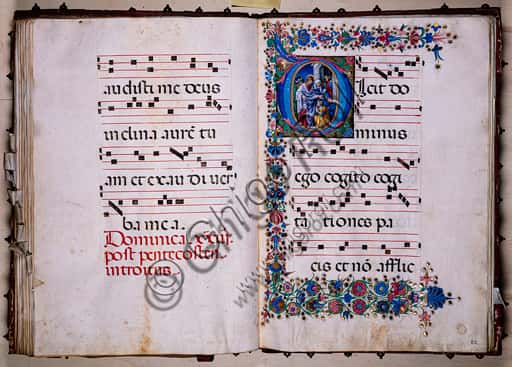 audisti me deus
inclina aurē tu
am et exaudi ver
ba mea.
Dominica xxiii.
post pentecosten
introitus.
Dicit do
minus
ego cogito cogi
tationes pa
cis et nō afflic